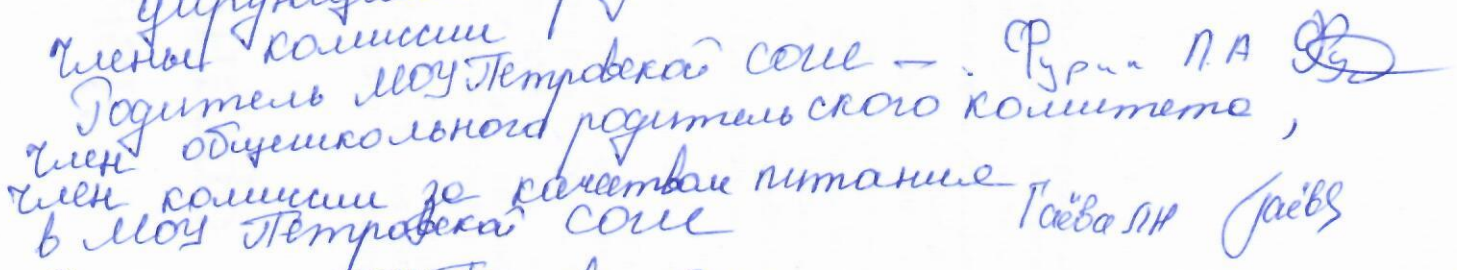 Члены комиссии
Родитель МОУ Петровской СОШ - Фурин П.А
Член общешкольного родительского комитета,
член комиссии за качеством питания
в МОУ Петровской СОШ Гаёва ЛН Гаёва